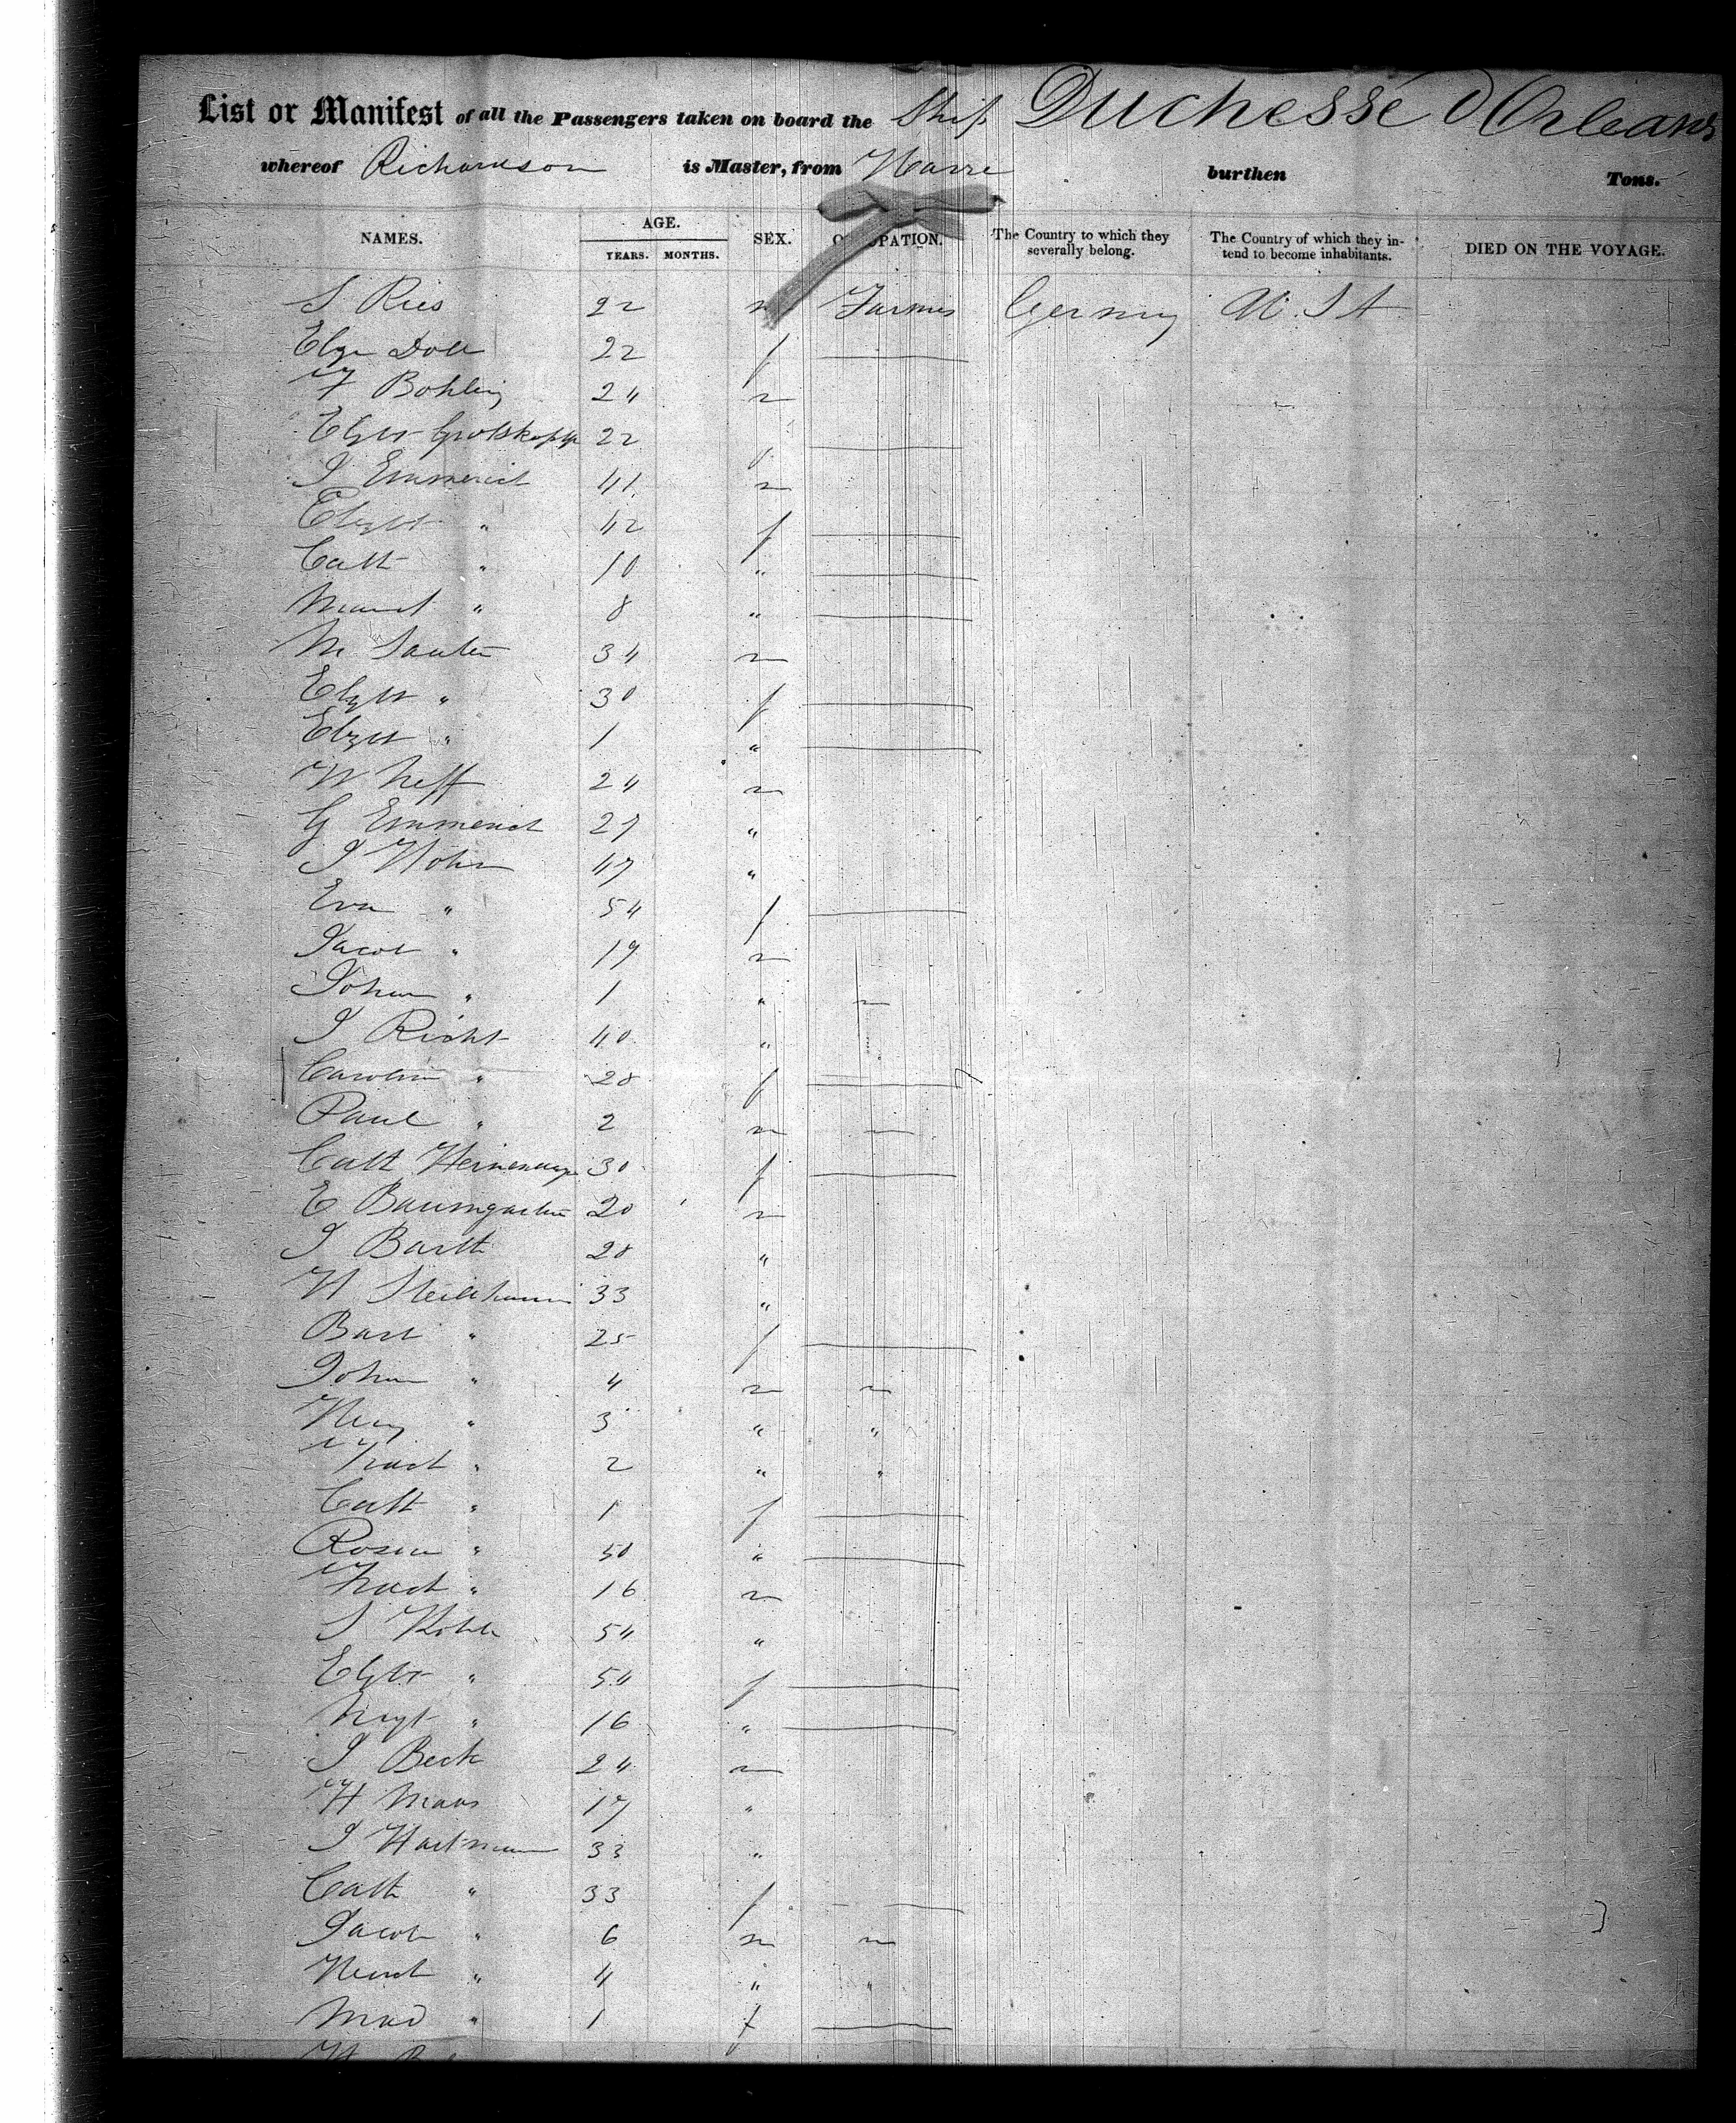 List or Manifest of all the Passengers taken on board the Ship Duchesse d Orleans
whereof Richardson is Master, from Havre burthen Tons.
NAMES. AGE. YEARS. MONTHS. SEX. OCCUPATION. The Country to which they severally belong. The Country of which they intend to become inhabitants. DIED ON THE VOYAGE.
S Ries 22 m Farmers Germny U. S A
Doll 22 f
F Bohling 24 m
22 f
J Emmerich 41 m
Elizbt " 42 f
Cath " 10 "
8 "
M Sauter 34 m
Elizbt " 30 f
Elizbt " 1 "
W Neff 24 m
G Emmerich 27 "
J Hohn 47 "
Eva " 54 f
Jacob " 19 m
Johan " 1 "
J Richt 40 "
Carolin " 28 f
Paul " 2 m
Cath 30 f
E Baumgarten 20 m
J Barth 28 "
H 33 "
Barb " 25 f
Johan " 4 m m
Henry " 3 " "
" 2 " "
Cath " 1 f
Rosina " 50 "
" 16 m
S 54 "
Elizbt " 54 f
" 16 "
J Beck 24 m
H Maas 17 "
J Hartmann 33 "
Cath " 33 f
Jacob " 6 m m
" 4 " "
" 1 f